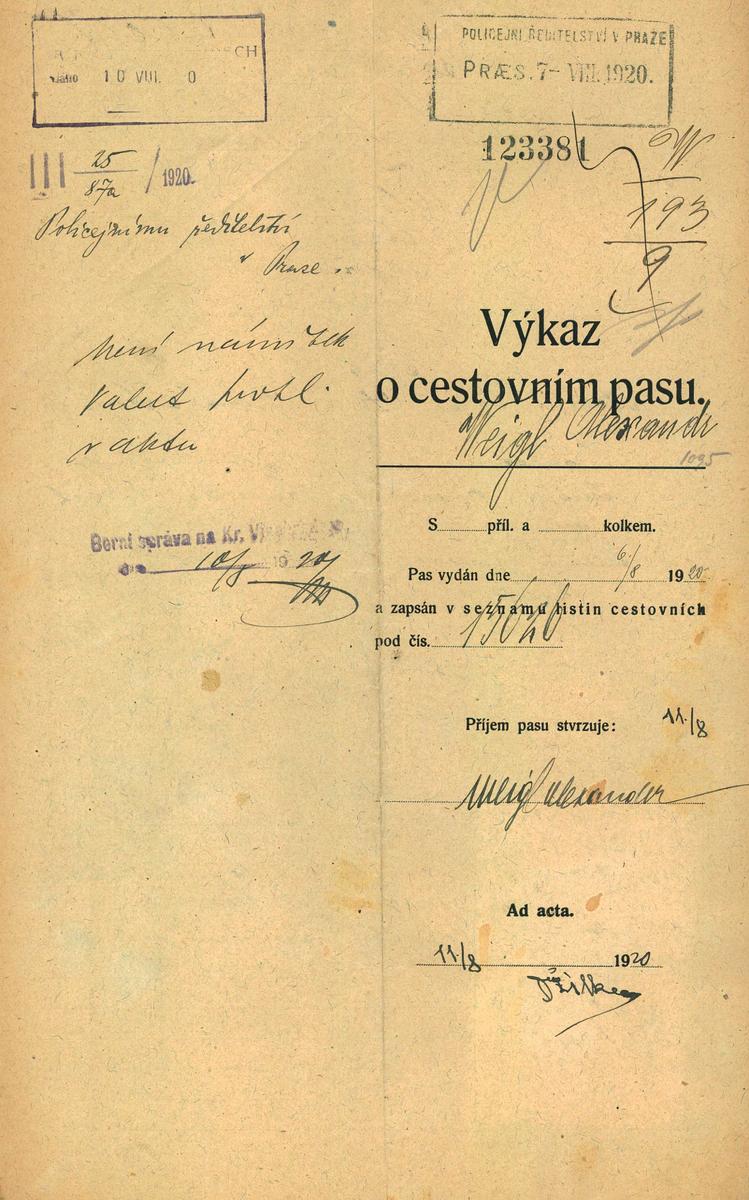 ECH
dáno 10 VIII. 0
III 25/87a / 1920.
Policejnímu ředitelství
v Praze.
není námitek
v aktu
Berní správa na Kr.
10/8 1920
POLICEJNÍ ŘEDITELSTVÍ V PRAZE
PRÆS. 7- VIII. 1920.
123381
W
193
9
Výkaz
o cestovním pasu.
Weigl Alexandr
1095
S příl. a kolkem.
Pas vydán dne 6/8 1920
a zapsán v seznamu listin cestovních
pod čís.
Příjem pasu stvrzuje: 11/8
Weigl Alexander
Ad acta.
11/8 1920